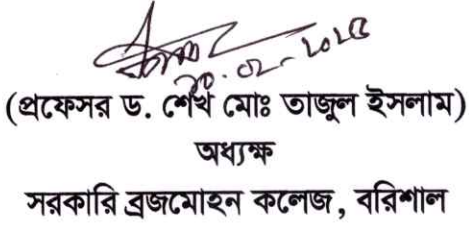 (প্রফেসর ড. শেখ মোঃ তাজুল ইসলাম)
অধ্যক্ষ
সরকারি ব্রজমোহন কলেজ, বরিশাল